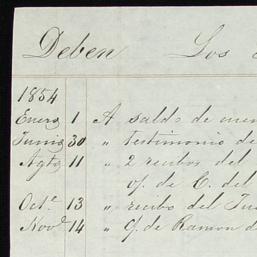 Deben Los
1854
Enero 1 A saldo de
Junio 30 " testimonio de
Agto 11 " 2 recibos del
of. de C. del
Octe. 13 " recibo del
Novе. 14 " of. de Ramon d